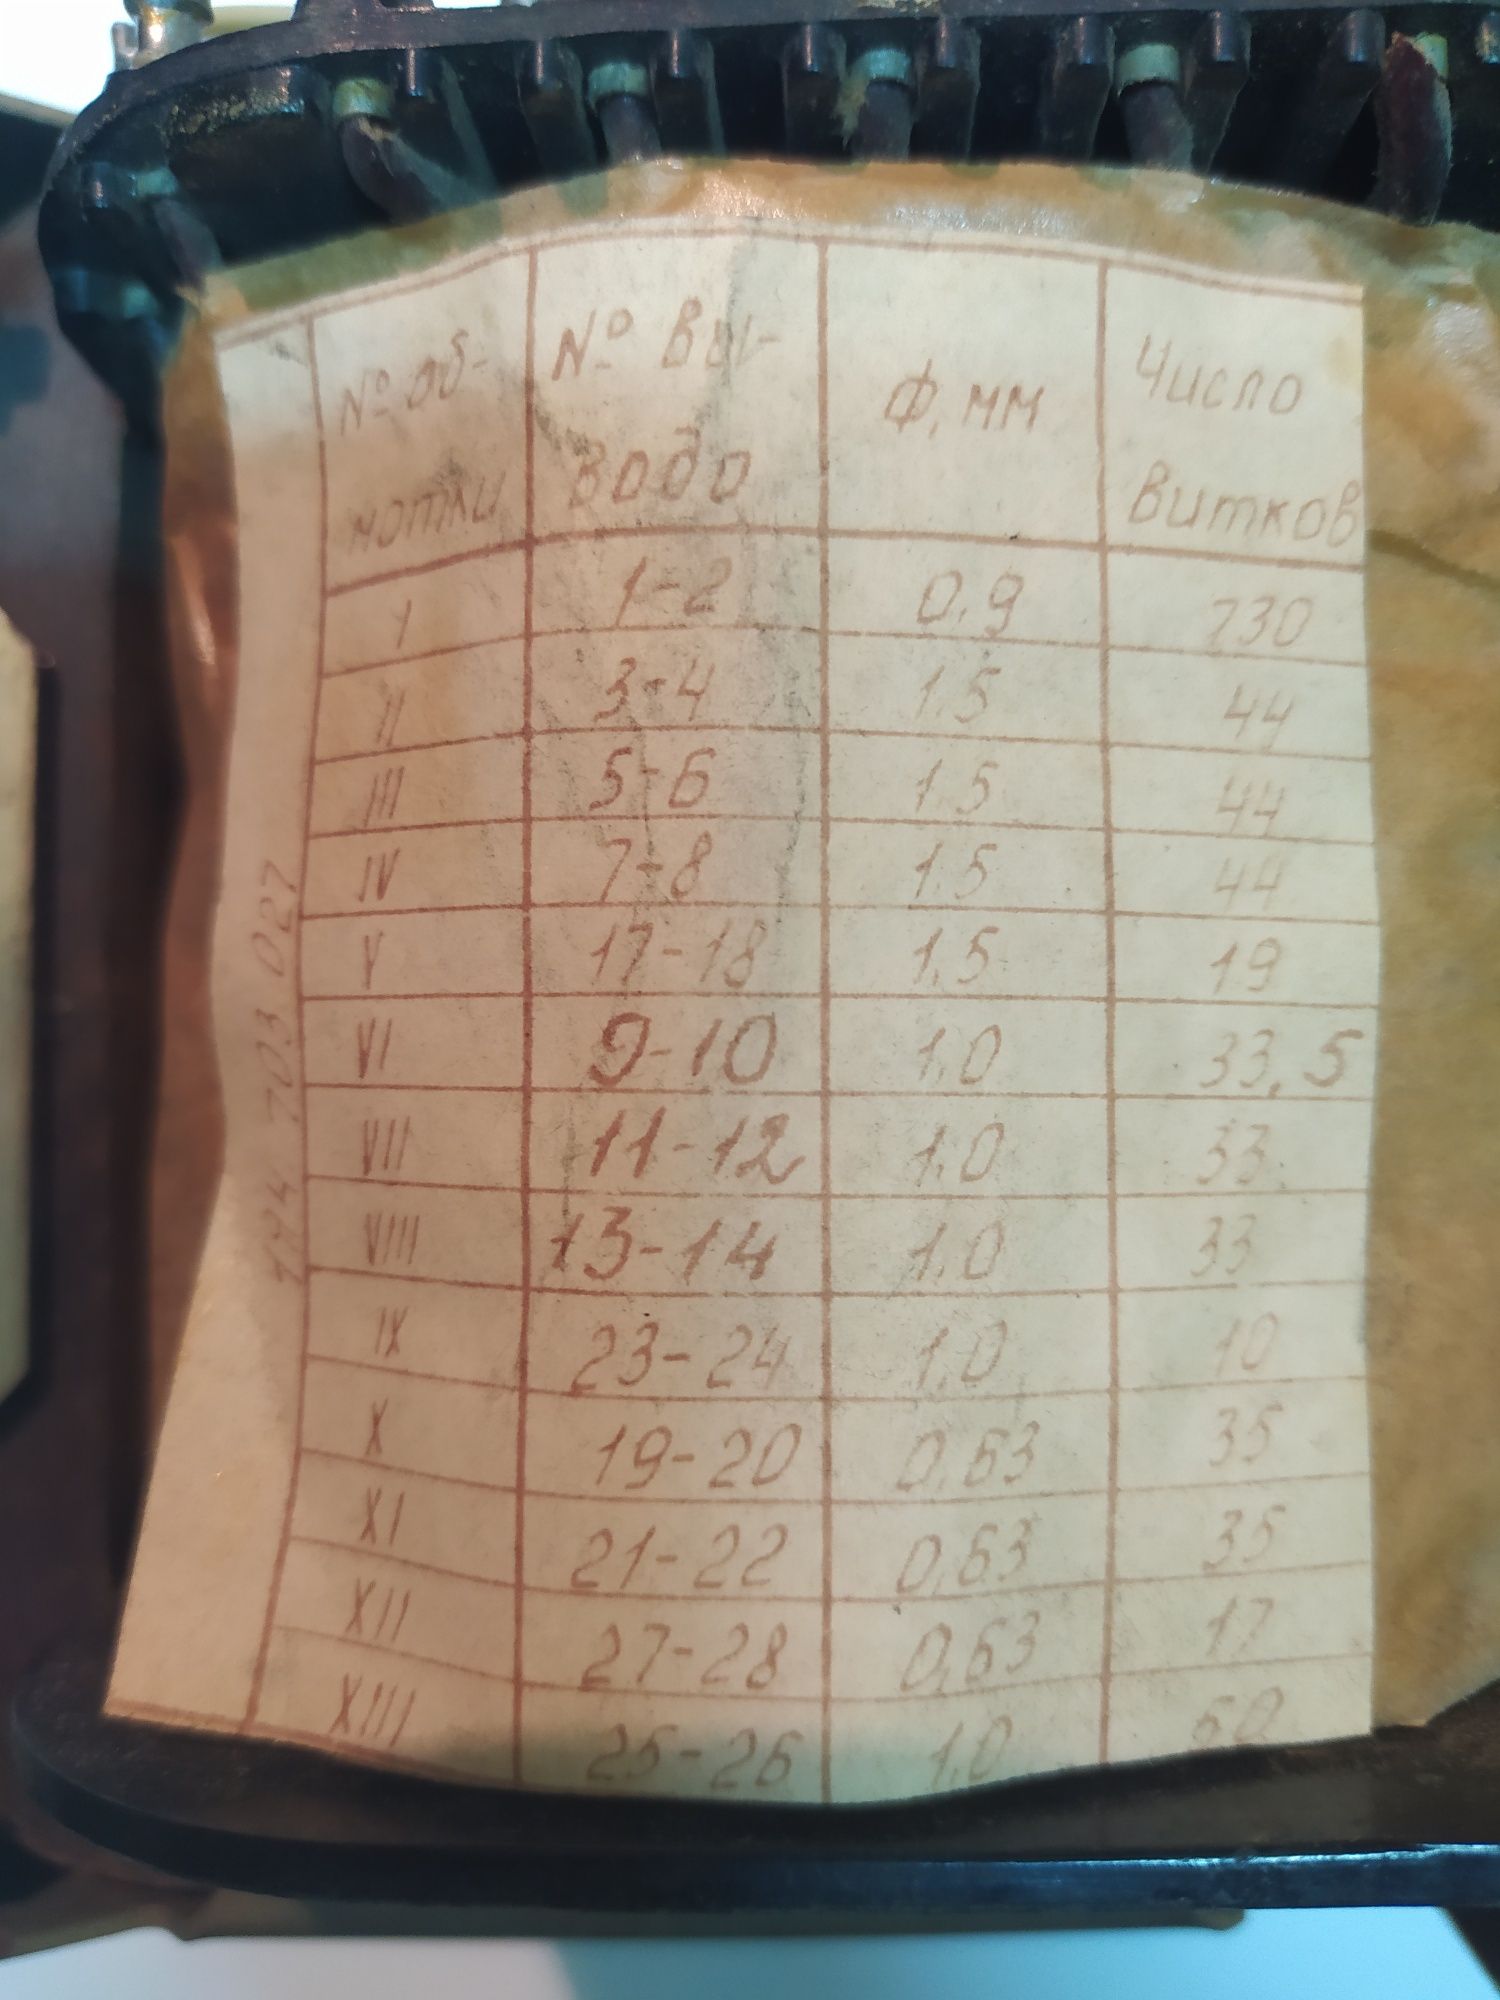 № об-
мотки
№ вы-
вода
Ф, мм
Число
витков
I 1-2 0,9 230
II 3-4 1.5 44
III 5-6 1.5 44
IV 7-8 1.5 44
V 17-18 1.5 19
VI 9-10 1.0 33,5
VII 11-12 1.0 33
VIII 13-14 1.0 33
IX 23-24 1.0 10
X 19-20 0,63 35
XI 21-22 0,63 35
XII 27-28 0,63 17
XIII 25-26 1.0 60
703 027